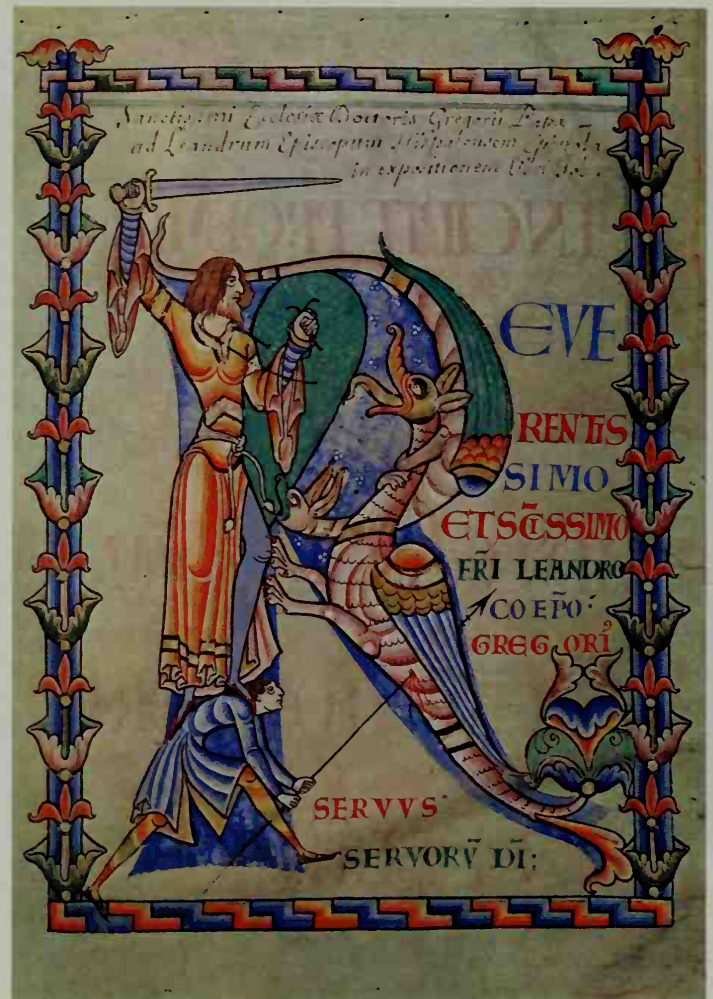 Sanctissimi Ecclesiæ Doctoris Gregorii Papæ
ad Leandrum Episcopum Hispalensem
in expositionem libri Iob
R EVE
RENTIS
SIMO
ET SC̄ISSIMO
FR̄I LEANDRO
COEP̄O
GREGORIꝰ
SERVVS
SERVORV̄ DĪ: